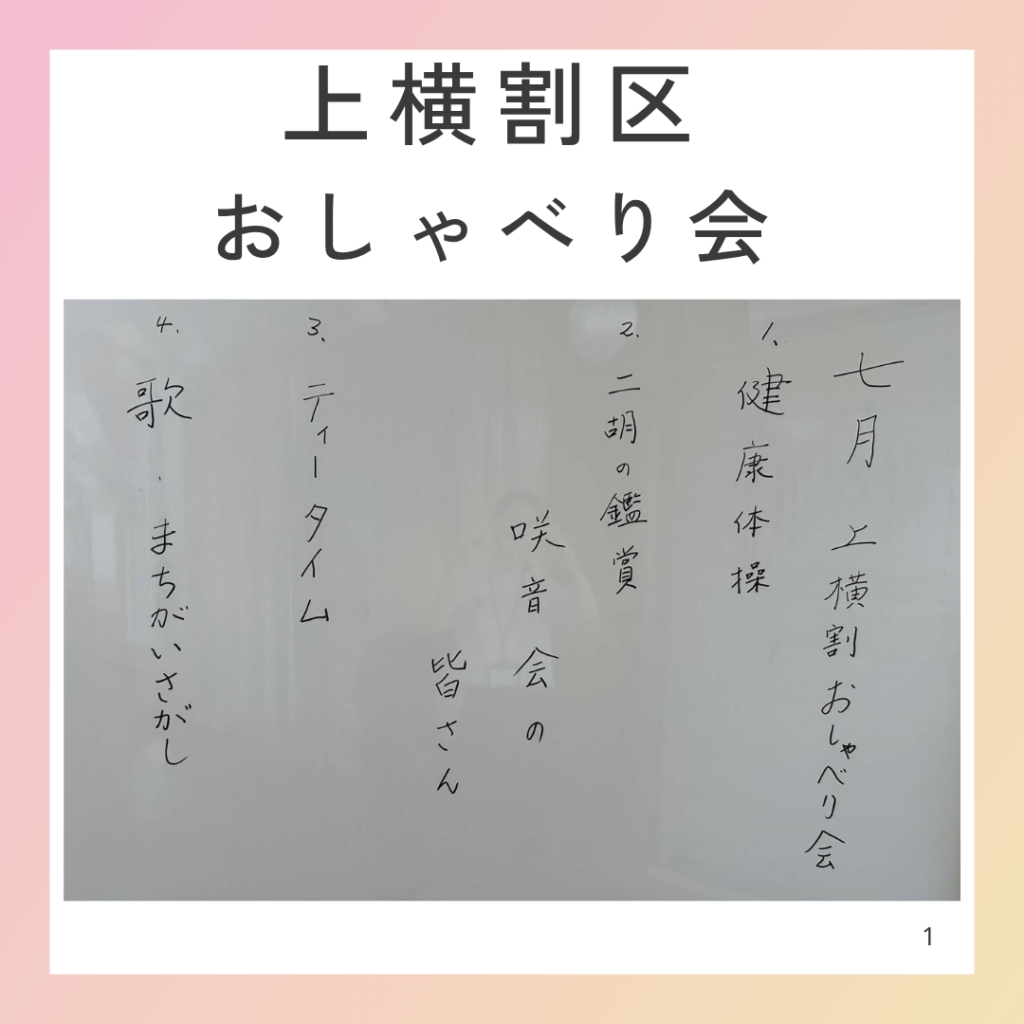 上横割区
おしゃべり会
七月 上横割おしゃべり会
1、健康体操
2.二胡の鑑賞
咲音会の
皆さん
3、ティータイム
4.歌・まちがいさがし
1